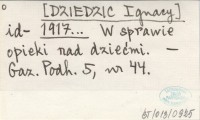 [DZIEDZIC Ignacy]
id- 1917... W sprawie
opieki nad dziećmi. –
Gaz. Podh. 5, nr 44.